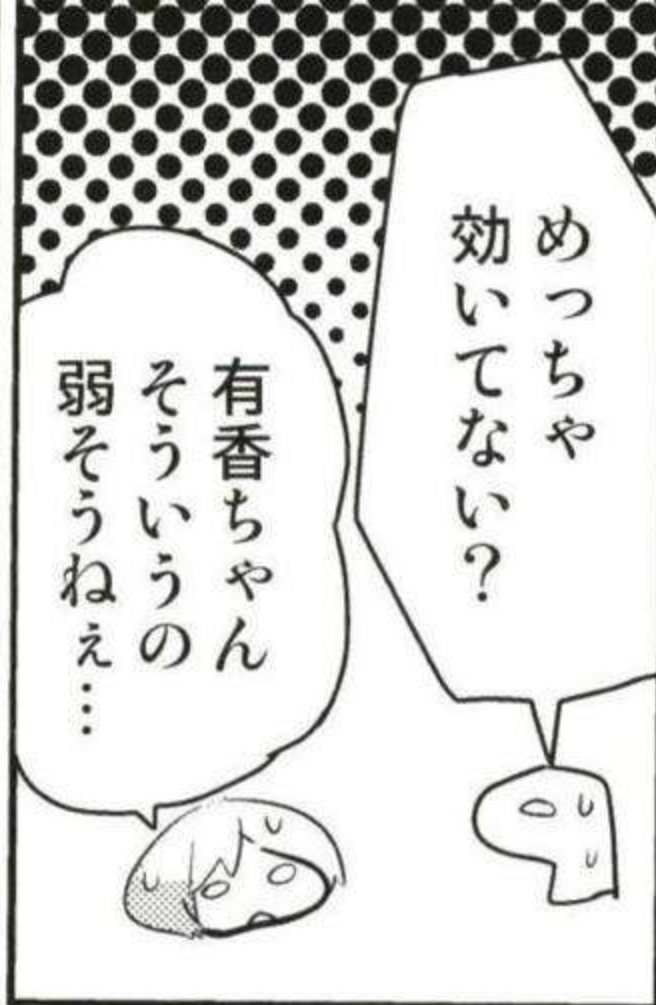 めっちゃ
効いてない？
有香ちゃん
そういうの
弱そうねぇ…